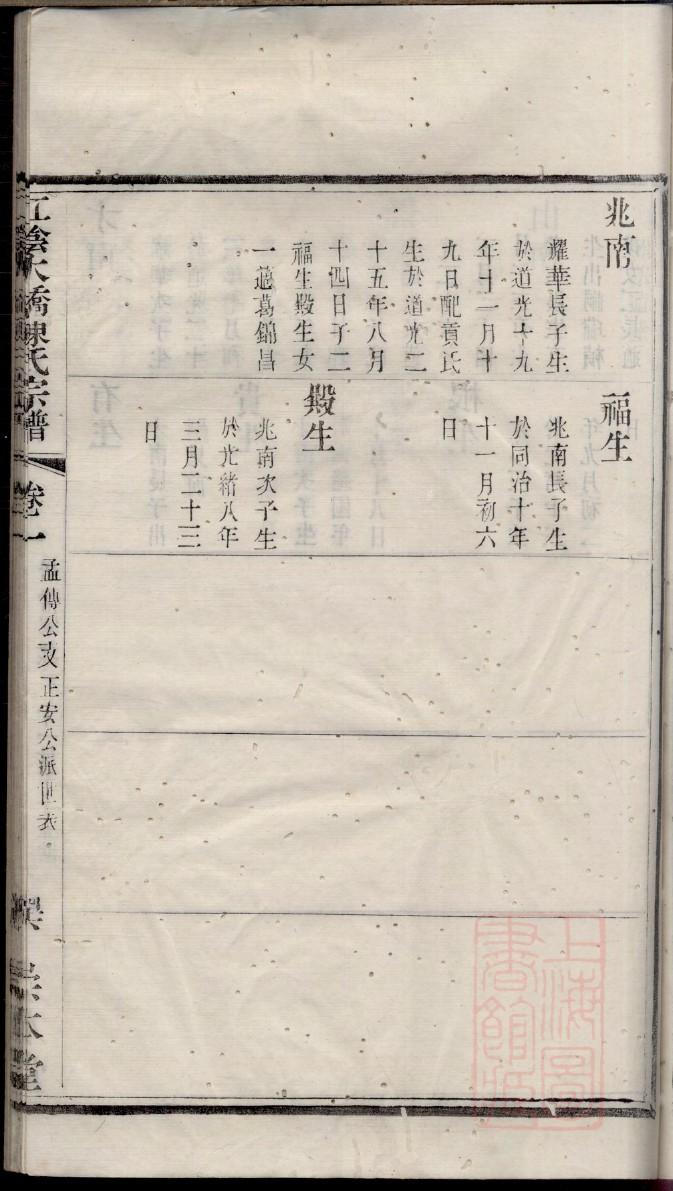 兆南
耀華長子生
於道光十九
年十一月十
九日配貢氏
生於道光二
十五年八月
十四日子二
福生毀生女
一適葛錦昌
福生
兆南長子生
於同治十年
十一月初六
日
毀生
兆南次子生
於光緒八年
三月二十三
日
江陰大橋陳氏宗譜
卷十一
孟傳公支正安公派世表
崇本堂
上海圖
書館藏